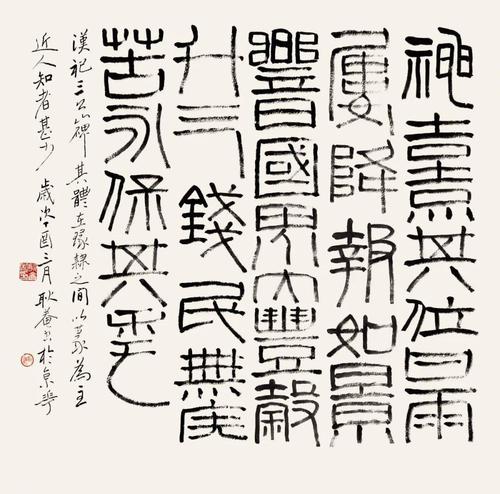 神熹其位甘雨
屢降報如景
響國界大豐穀
斗三錢民無疾
苦永保其年
漢祀三公山碑其體在篆隸之間以篆為主
近人知者甚少歲次丁酉三月耿菴書於京華